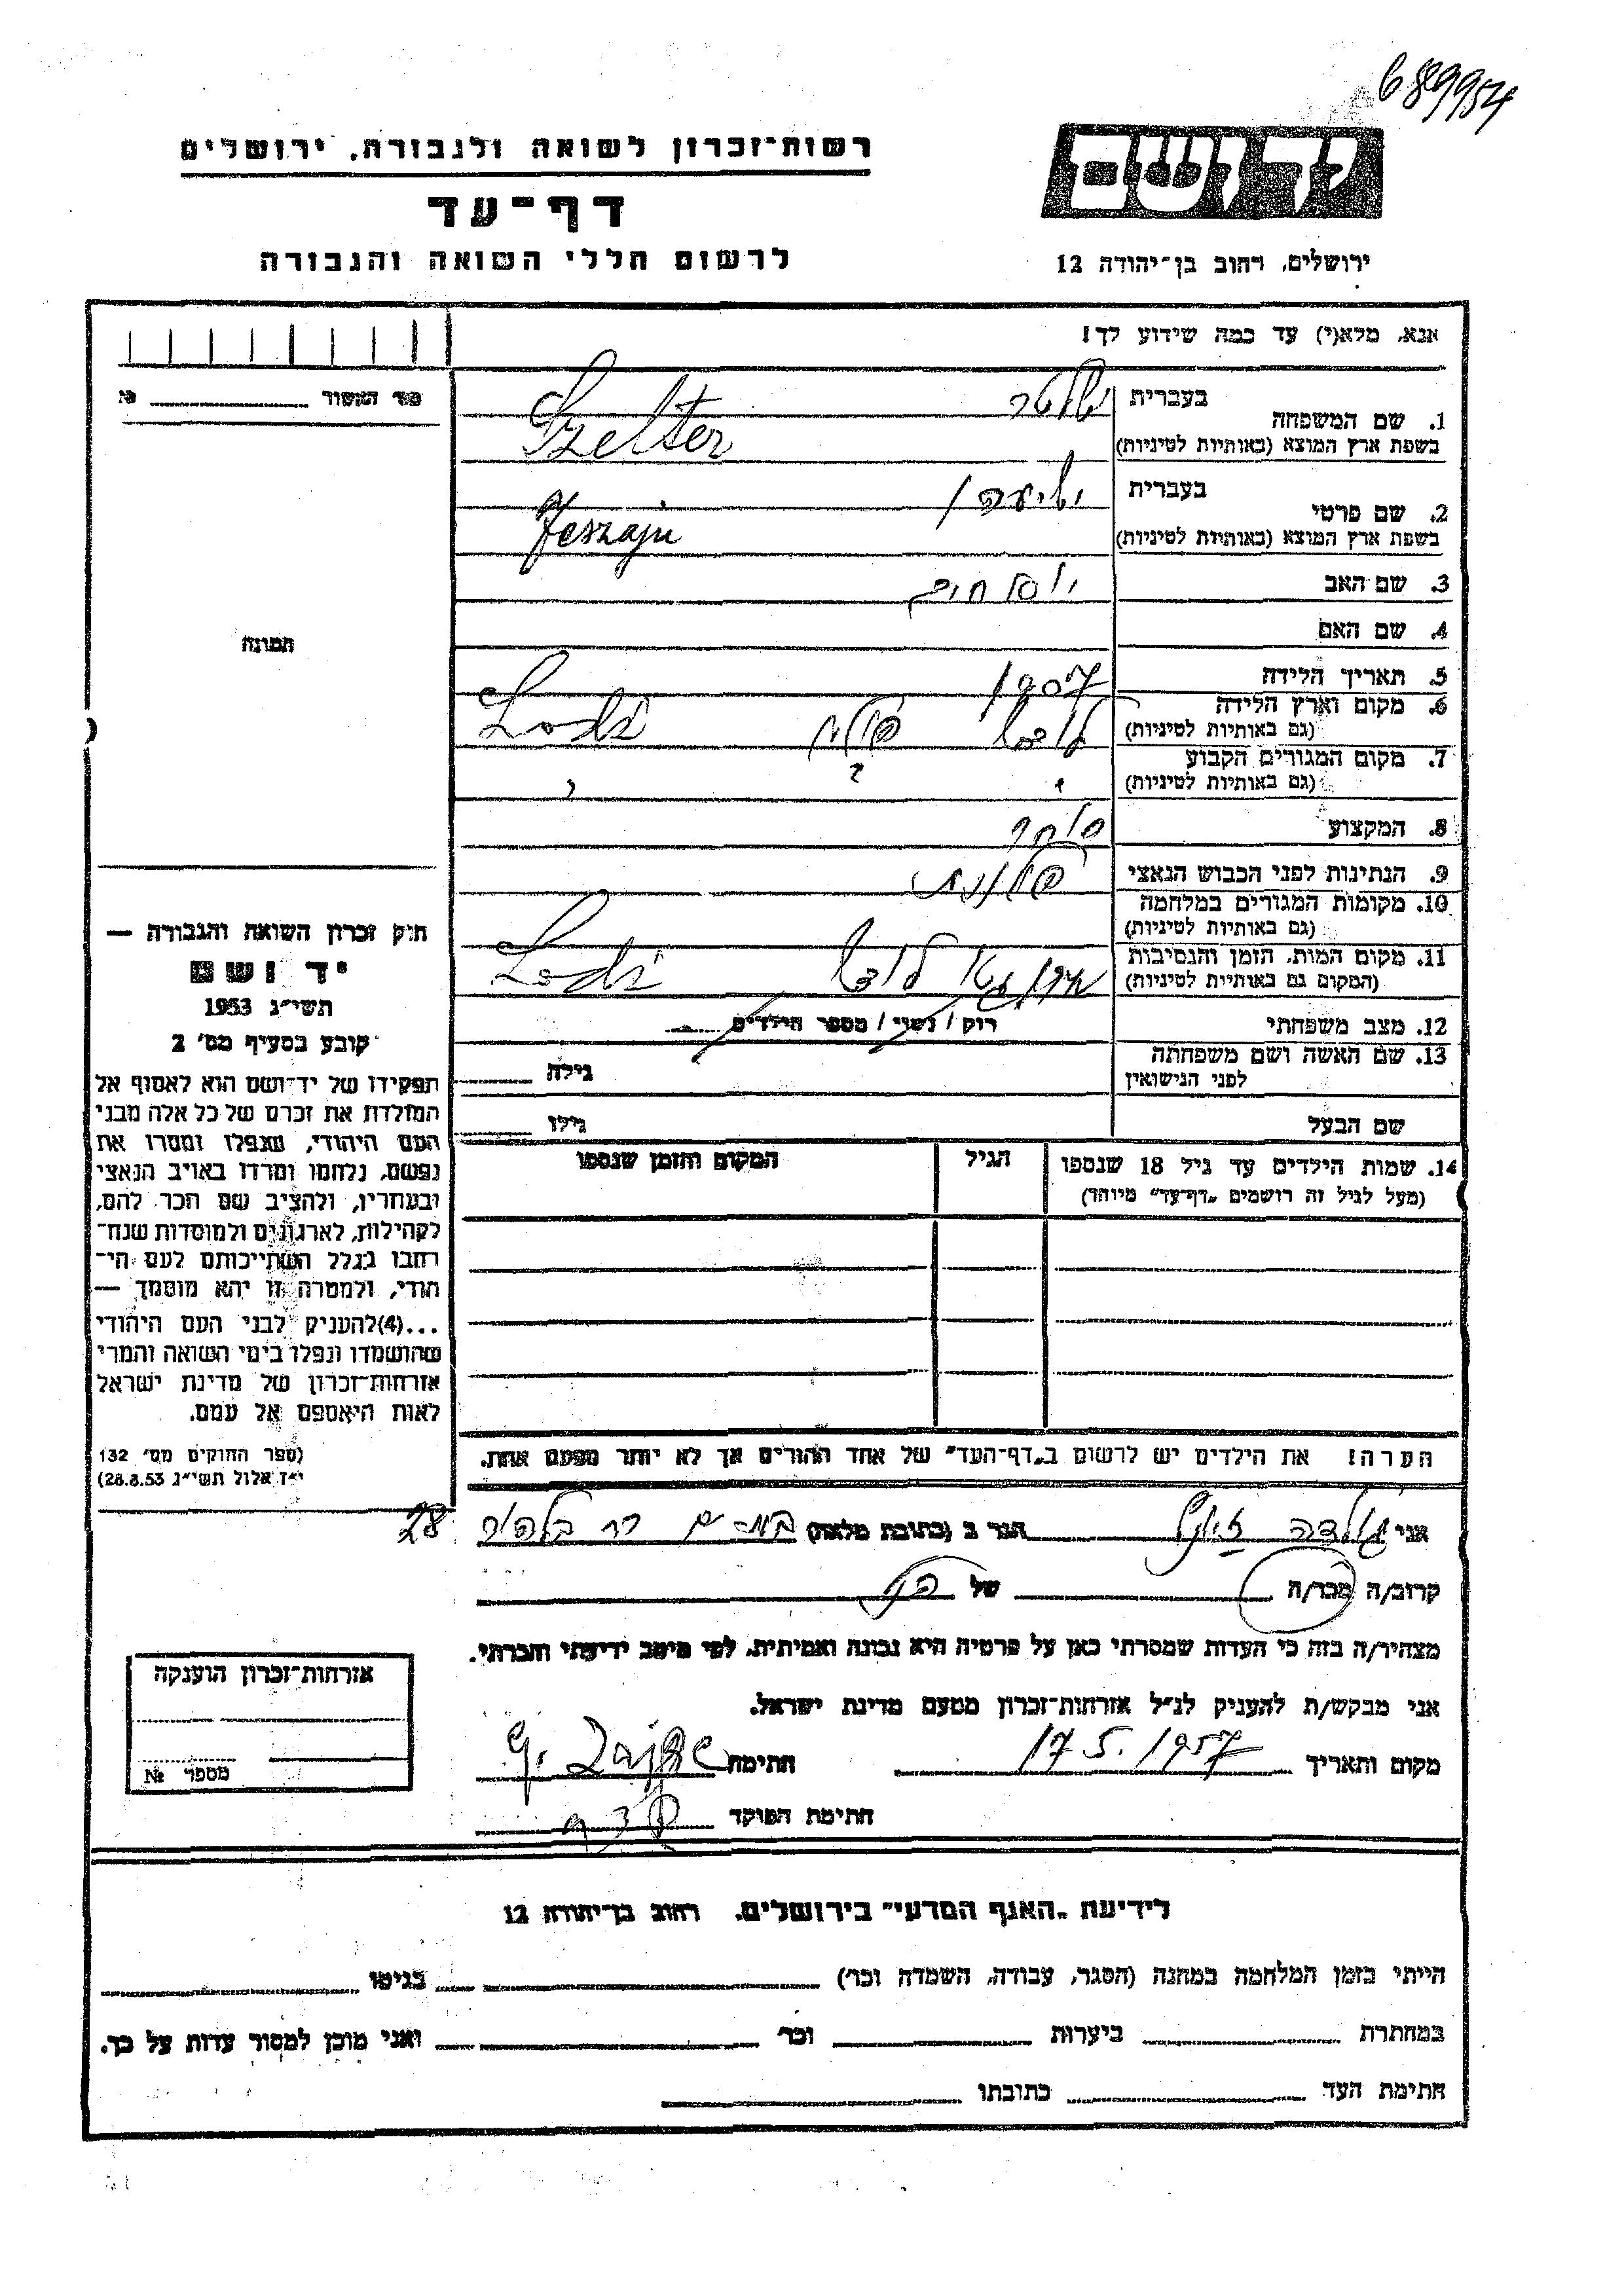 689954
רשות־זכרון לשואה ולגבורה, ירושלים
דף־עד
לרשום חללי השואה והגבורה
ידושם
ירושלים, רחוב בן־יהודה 12
אנא, מלא(י) עד כמה שידוע לך!
מס׳ האשור № 
1. שם המשפחה בעברית שלטר
בשפת ארץ המוצא (באותיות לטיניות) Szelter
2. שם פרטי בעברית ישיעהו
בשפת ארץ המוצא (באותיות לטיניות) Jeszaju
3. שם האב
4. שם האם
תמונה
5. תאריך הלידה 1907
6. מקום וארץ הלידה לודז פולין Lodź
(גם באותיות לטיניות)
7. מקום המגורים הקבוע
(גם באותיות לטיניות)
8. המקצוע סוחר
9. הנתינות לפני הכבוש הנאצי פולנית
10. מקומות המגורים במלחמה
(גם באותיות לטיניות)
11. מקום המות, הזמן והנסיבות גטו לודז Lodź
(המקום גם באותיות לטיניות)
12. מצב משפחתי רווק / נשוי / מספר הילדים
13. שם האשה ושם משפחתה גילה
לפני הנישואין
שם הבעל גילו
14. שמות הילדים עד גיל 18 שנספו הגיל המקום והזמן שנספו
(מעל לגיל זה רושמים „דף־עד" מיוחד)
הערה! את הילדים יש לרשום ב„דף־העד" של אחד ההורים אך לא יותר מפעם אחת.
חוק זכרון השואה והגבורה —
יד ושם
תשי״ג 1953
קובע בסעיף מס׳ 2
תפקידו של יד־ושם הוא לאסוף אל
המולדת את זכרם של כל אלה מבני
העם היהודי, שנפלו ומסרו את
נפשם, נלחמו ומרדו באויב הנאצי
ובעוזריו, ולהציב שם וזכר להם,
לקהילות, לארגונים ולמוסדות שנח־
רבו בגלל השתייכותם לעם הי־
הודי, ולמטרה זו יהא מוסמך —
...(4) להעניק לבני העם היהודי
שהושמדו ונפלו בימי השואה והמרי
אזרחות־זכרון של מדינת ישראל
לאות היאספם אל עמם.
(ספר החוקים מס׳ 132
י״ז אלול תשי״ג 28.8.53)
אני גולדה הגר ב (כתובת מלאה) בת־ים 28
קרוב/ה מכר/ה של
מצהיר/ה בזה כי העדות שמסרתי כאן על פרטיה היא נכונה ואמיתית, לפי מיטב ידיעתי והכרתי.
אני מבקש/ת להעניק לנ״ל אזרחות־זכרון מטעם מדינת ישראל.
מקום ותאריך 17.5.1957 חתימה
חתימת הפוקד
אזרחות־זכרון הוענקה
מספר №
לידיעת „האגף המדעי" בירושלים, רחוב בן־יהודה 12
הייתי בזמן המלחמה במחנה (הסגר, עבודה, השמדה וכו׳) בגיטו
במחתרת ביערות וכו׳ ואני מוכן למסור עדות על כך.
חתימת העד כתובתו